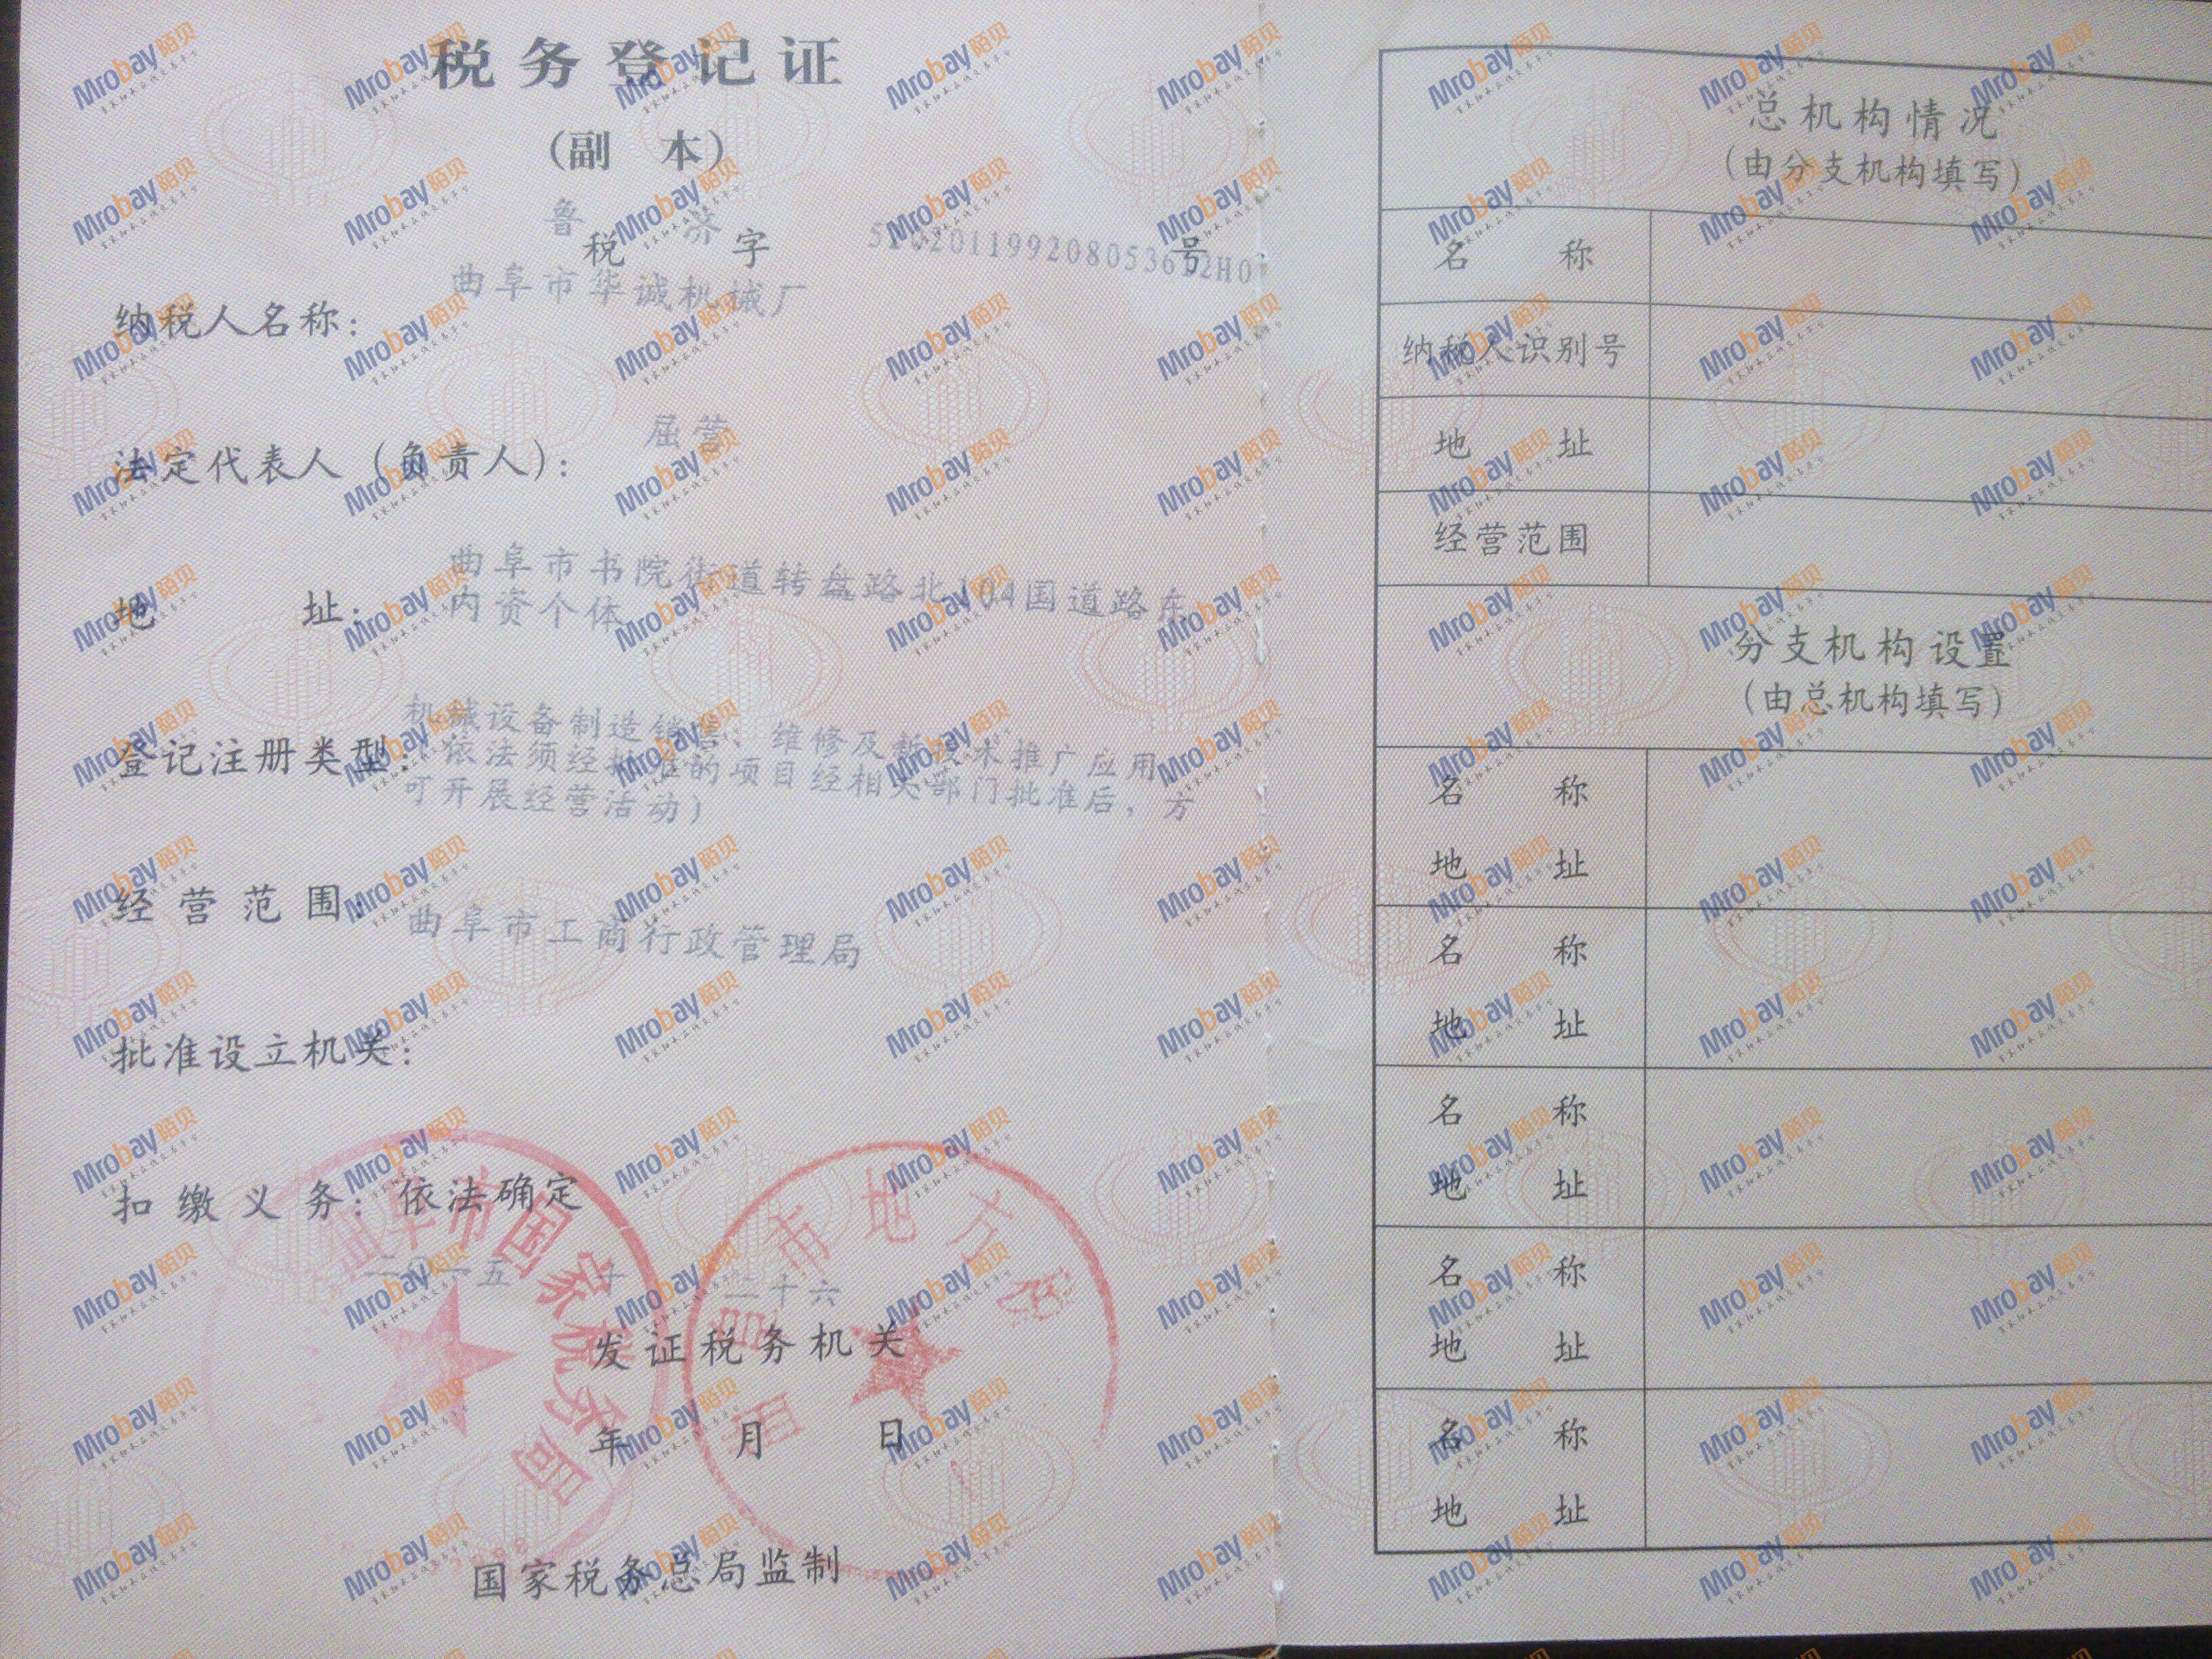 税务登记证
(副 本)
鲁 济
税 字 号
曲阜市华诚机械厂
纳税人名称:
屈营
法定代表人(负责人):
曲阜市书院街道转盘路北104国道路东
地 址:
内资个体
机械设备制造销售、维修及新技术推广应用。
登记注册类型:
(依法须经批准的项目经相关部门批准后,方
可开展经营活动)
经营范围:
曲阜市工商行政管理局
批准设立机关:
扣缴义务:依法确定
二〇一五 十 二十六
发证税务机关
年 月 日
国家税务总局监制
曲阜市国家税务局
市地方税
总机构情况
(由分支机构填写)
名 称
纳税人识别号
地 址
经营范围
分支机构设置
(由总机构填写)
名 称
地 址
名 称
地 址
名 称
地 址
名 称
地 址
名 称
地 址
Mrobay陌贝